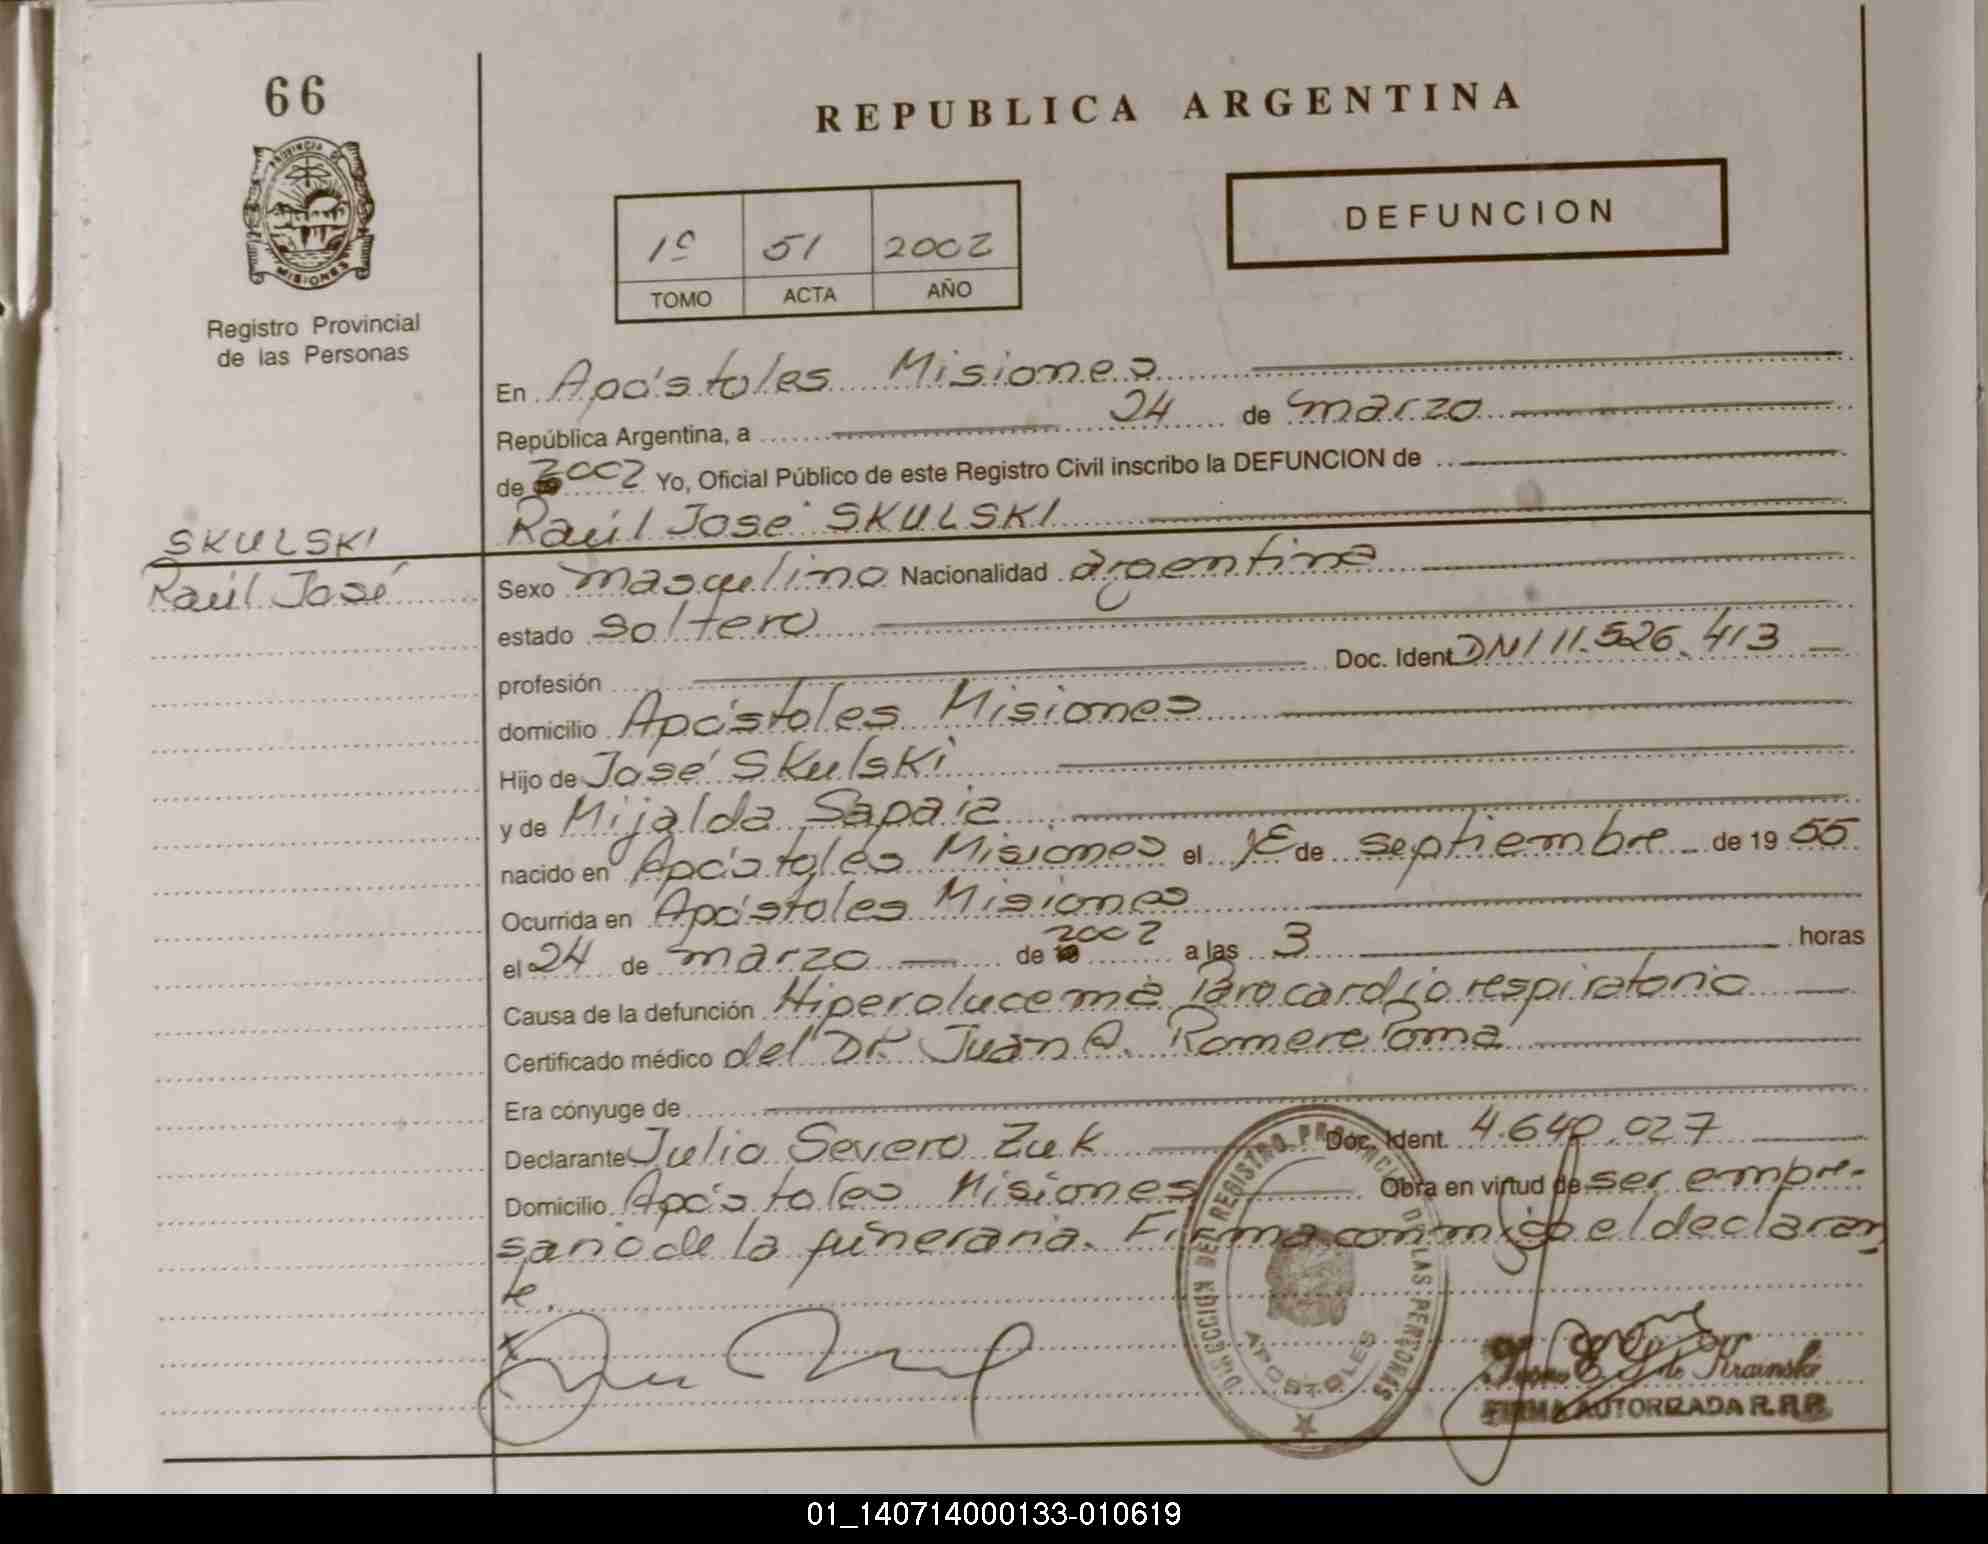 66
PROVINCIA DE
MISIONES
Registro Provincial
de las Personas
REPUBLICA ARGENTINA
DEFUNCION
1º 51 2002
TOMO ACTA AÑO
En Apóstoles Misiones
República Argentina, a 24 de marzo
de 2002 Yo, Oficial Público de este Registro Civil inscribo la DEFUNCION de
Raúl José SKULSKI
SKULSKI
Raúl José
Sexo masculino Nacionalidad argentina
estado soltero
profesión Doc. Ident. DNI 11.526.413
domicilio Apóstoles Misiones
Hijo de José Skulski
y de Mijalda Sapaia
nacido en Apóstoles Misiones el de septiembre de 1955
Ocurrida en Apóstoles Misiones
el 24 de marzo de 2002 a las 3 horas
Causa de la defunción Paro cardiorespiratorio
Certificado médico del Dr. Juan Romero
Era cónyuge de
Declarante Julio Severo Zuk Doc. Ident. 4.640.027
Domicilio Apóstoles Misiones Obra en virtud de ser empre-
sario de la funeraria. Firma conmigo el declaran
te.
DIRECCION DEL REGISTRO PROVINCIAL DE LAS PERSONAS
APOSTOLES
FIRMA AUTORIZADA R.P.P.
01_140714000133-010619